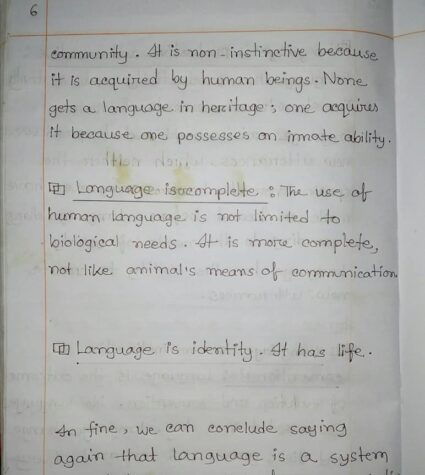 6
community. It is non-instinctive because
it is acquired by human beings. None
gets a language in heritage; one acquires
it because one possesses an innate ability.
Language is complete: The use of
human language is not limited to
biological needs. It is more complete,
not like animal's means of communication
Language is identity. It has life.
In fine, we can conclude saying
again that language is a system